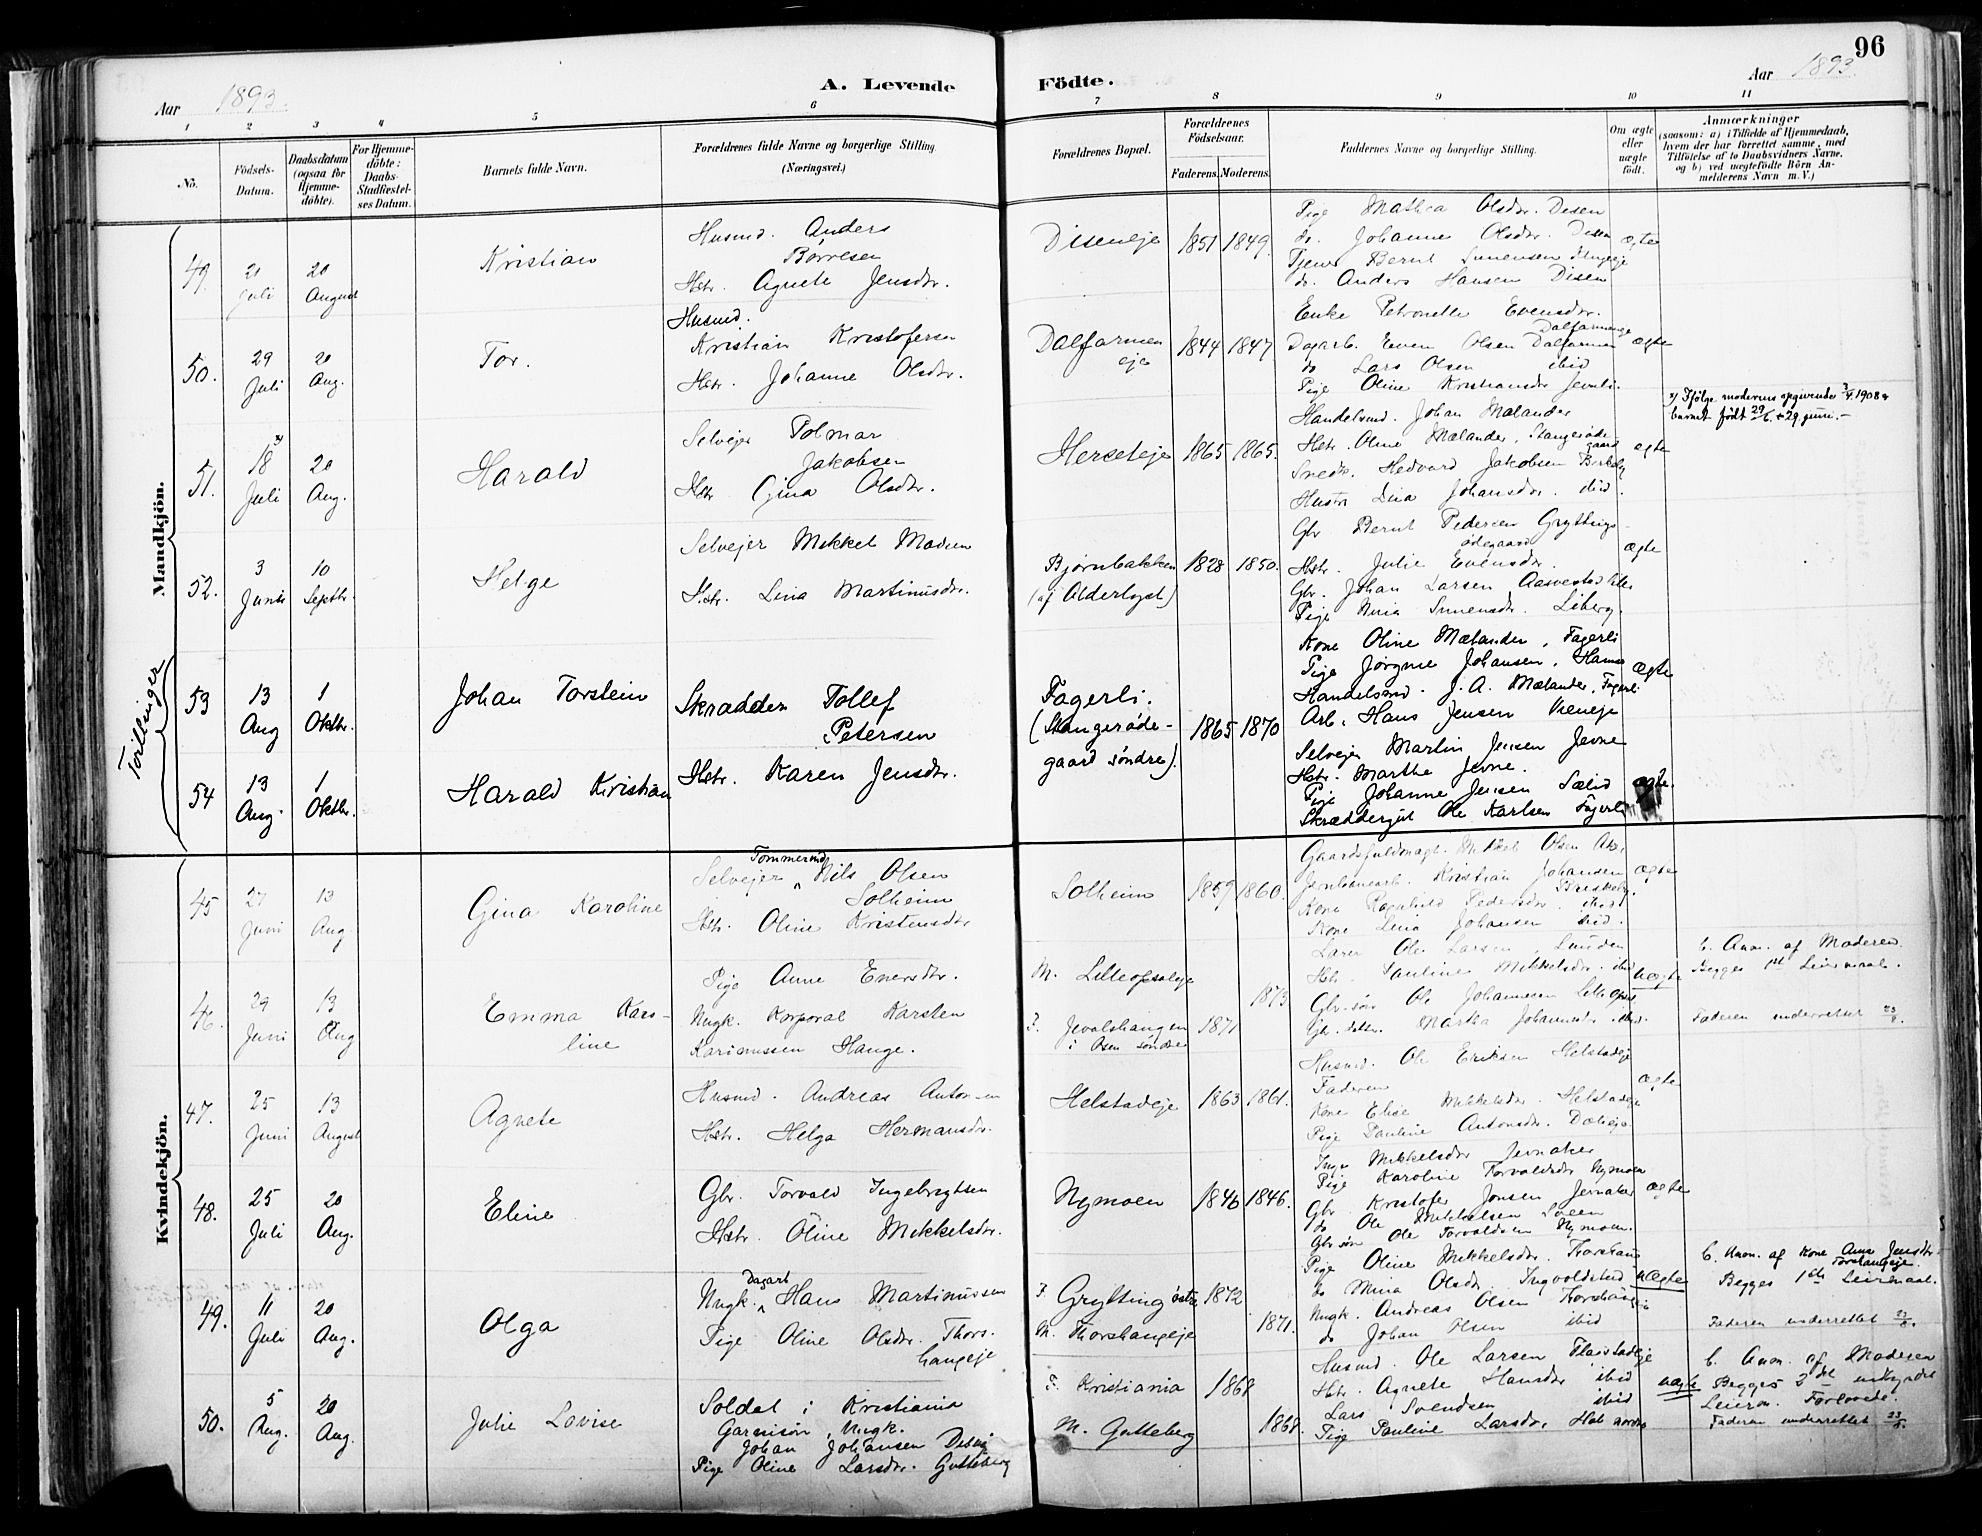 96
Aar 1893.
A. Levende Födte.
Aar 1893.
1 2 3 4 5 6 7 8 9 10 11
No.
Födsels-Datum.
Daabsdatum (ogsaa for Hjemme-döbte).
For Hjemme-döbte: Daabs-Stadfæstel-ses Datum.
Barnets fulde Navn.
Forældrenes fulde Navne og borgerlige Stilling (Næringsvei.)
Forældrenes Bopæl.
Forældrenes Födselsaar.
Faderens. Moderens.
Faddernes Navne og borgerlige Stilling.
Om ægte eller uægte födt.
Anmærkninger
(saasom: a) i Tilfælde af Hjemmedaab, hvem der har forrettet samme, med Tilföielse af to Daabsvidners Navne, og b) ved uægtefödte Börn An-melderens Navn m. V.)
Mandkjön.
49. 21 Juli
20 August
Kristian
Husmd. Anders
Børresen
Hstr. Agnete Jensdtr.
Diseneje 1851 1849.
Pige Mathea Olsdtr. Disen
do. Johanne Olsdtr. Disen
do. Anders Hansen Disen
ægte
50. 29 Juli
20 Aug.
Tor.
Husmd.
Kristian Kristofersen
Hstr. Johanne Olsdtr.
Dalfarmen
eje
1844 1847
Enke Petronelle Evensdtr.
Dalfarmeneje
Dagarb. Even Olsen Dalfarmen
do Lars Olsen ibid
Pige Oline Kristiansdtr Jevnli.
ægte
51. 18 Juli
20 Aug.
Harald
Selvejer Polmar
Jakobsen
Hstr Gina Olsdtr.
Herseteje 1865 1865.
Handelsmd. Johan Mælander
Hstr. Oline Mælander, Stangerøde
gaard
Snedk. Hedvard Jakobsen
Hustru Lina Johansdtr. ibid.
ægte
barnet født 29/6 = 29 juni.-
52. 3 Juni
10 Septbr.
Helge
Selvejer Mikkel Madsen
Hstr. Lina Martinusdtr.
Bjørnbakken
(af Alderlyst)
1828 1850.
Gbr Bernt Pedersen Gryttings-
ødegaard
Hstr. Julie Evensdtr.
Gbr. Johan Larsen
Liberg.
ægte
Tvillinger
53 13 Aug
1 Oktbr.
Johan Torstein
Skrædder Tollef
Petersen
Hstr. Karen Jensdtr.
Fagerli.
(Stangerøde-
gaard søndre).
1865 1870
Kone Oline Mælander, Fagerli
Pige Jørgine Johansen,
Handelsmd. J. A. Mælander, Fagerli
Arb. Hans Jensen
ægte
54 13 Aug.
1 Oktbr.
Harald Kristian
Selvejer Martin Jensen Jevne
Hstr. Marthe Jevne.
Pige Johanne Jensen Sælid
Skræddergut Ole Karlsen Fagerli
ægte.
Kvindekjön.
45 27 Juni
13 Aug
Gina Karoline
Tømmermd
Selvejer Nils Olsen
Solheim
Hstr. Oline Kristensdtr
Solheim 1859 1860.
Jernbanearb. Kristian Johansen
Kone Ragnhild Pedersdtr. ibid
Kone Lina Johansen ibid.
ægte
46. 29 Juni
13 Aug
Emma Karo-
line
Pige Anne Enersdtr.
Ungk. Korporal Karsten
Karinussen Hauge.
M. Lilleopsaleje
1873
F. Jevolshaugen
i Osen søndre
1871
Lærer Ole Larsen,
Hstr. Pauline Mikkelsdtr. ibid
Gbr.søn Ole Johannesen Lilleopsal
Gbr. datter. Martha Johannesdtr. ibid.
uægte
b. Anm. af Moderen.
Begges 1ste Leiermaal.
Faderen underrettet 23/8.
47. 25 Juni
13 August
Agnete
Husmd. Andreas Antonsen
Hstr. Helga Hermansdtr.
Helstadeje 1863 1861.
Husmd. Ole Eriksen Helstadeje
Faderen
Kone Elise Mikkelsdtr. Helstadeje
Pige Pauline Antonsdtr.
ægte
48. 25 Juli
20 Aug.
Eline
Gbr. Torvald Ingebrigtsen
Hstr. Oline Mikkelsdtr.
Nymoen 1846 1846.
Inga Mikkelsdtr Jevnaker
Pige Karoline Torvaldsdtr Nymoen
Gbr Kristofer Jonsen Jevnaker
do Ole Mikkelsen
Gbr søn Ole Torvaldsen Nymoen.
ægte
49. 11 Juli
20 Aug.
Olga
Dagarb
Ungk. Hans Martinussen
Pige Oline Olsdtr. Thors-
haugeje
F. Grytting østre 1872
M. Thorshaugeje 1871.
Pige Oline Mikkelsdtr. Thorshaug
do Mina Olsdtr Ingvoldstad
Ungk. Andreas Olsen Thorshaugeje
do Johan Olsen ibid
uægte
b. Anm. af Kone Anne Jensdtr
Torshaugeje.
Begges 1ste Leiermaal.
Faderen underrettet 23/8.
50. 5 Aug.
20 Aug.
Julie Lovise
Soldat i Kristiania
Garnison, Ungk.
Johan Johansen
Pige Oline Larsdtr. Gutteberg
F. Kristiania 1868
M. Gutteberg 1868.
Husmd. Ole Larsen
Hstr. Agnete Hansdtr ibid
Lars Svendsen ibid
Pige Pauline Larsdtr.
uægte
b. Anm. af Moderen
Leierm. Forlovede.
Faderen underrettet 23/8.